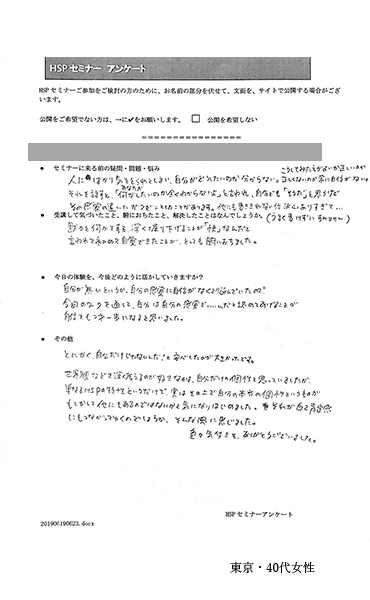 HSP セミナー アンケート
HSP セミナーご参加をご検討の方のために、お名前の部分を伏せて、文面を、サイトで公開する場合がござ
います。
公開をご希望でない方は、→に✔をお願いします。 □ 公開を希望しない
================
● セミナーに来る前の疑問・問題・悩み
人に ばかり気をとられてしまい、自分がどうしたいのか分からない。
それを話すと、「あなたが何がしたいのか全くわからないよ」と言われ、自分でも「そうだ」と思うなど
● 受講して気づいたこと、腑におちたこと、解決したことはなんでしょうか。(うまく書けずにすみません。)
言われて初めて自覚できたことが、とても腑におちました。
● 今日の体験を、今後どのように活かしていきますか?
自分が無いというか、自分の感覚に自信がなくて悩んでいたので
今回のワークを通して、自分は自分の感覚でいいんだと認めてあげることが
自信をもつ第一歩になると思いました。
● その他
とにかく、自分だけじゃないんだ!と安心したのが大きかったです。
世界観などを深く考えるのが好きなのは、自分だけの個性と思っていましたが、
単なるHSPの特性というだけで、実はその上で自分の本当の個性というものが
もしかして他にもあるのではないかと気になりはじめました。
にもつながってくるのでしょうか。そんな風に感じました。
色々気付きを、ありがとうございました。
HSP セミナーアンケート
201906190623.docx
東京・40代女性